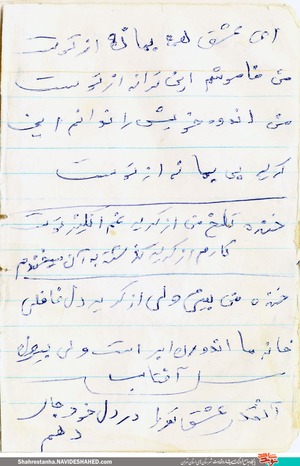 ای عشق همه بهانه از توست
من خاموشم این ترانه از توست
من اندوه خویش را ندانم این
گریه بی بهانه از توست
خنده تلخ من از گریه غم انگیزتر است
کارم از گریه گذشته به آن میخندم
خنده من بینی ولی از گریه دل غافلی
خانه ما اندرون ابر است و بیرون
آفتاب
آنقدر عشق تو را در دل خود جای
دهم
Shahrestanha.NAVIDESHAHED.com